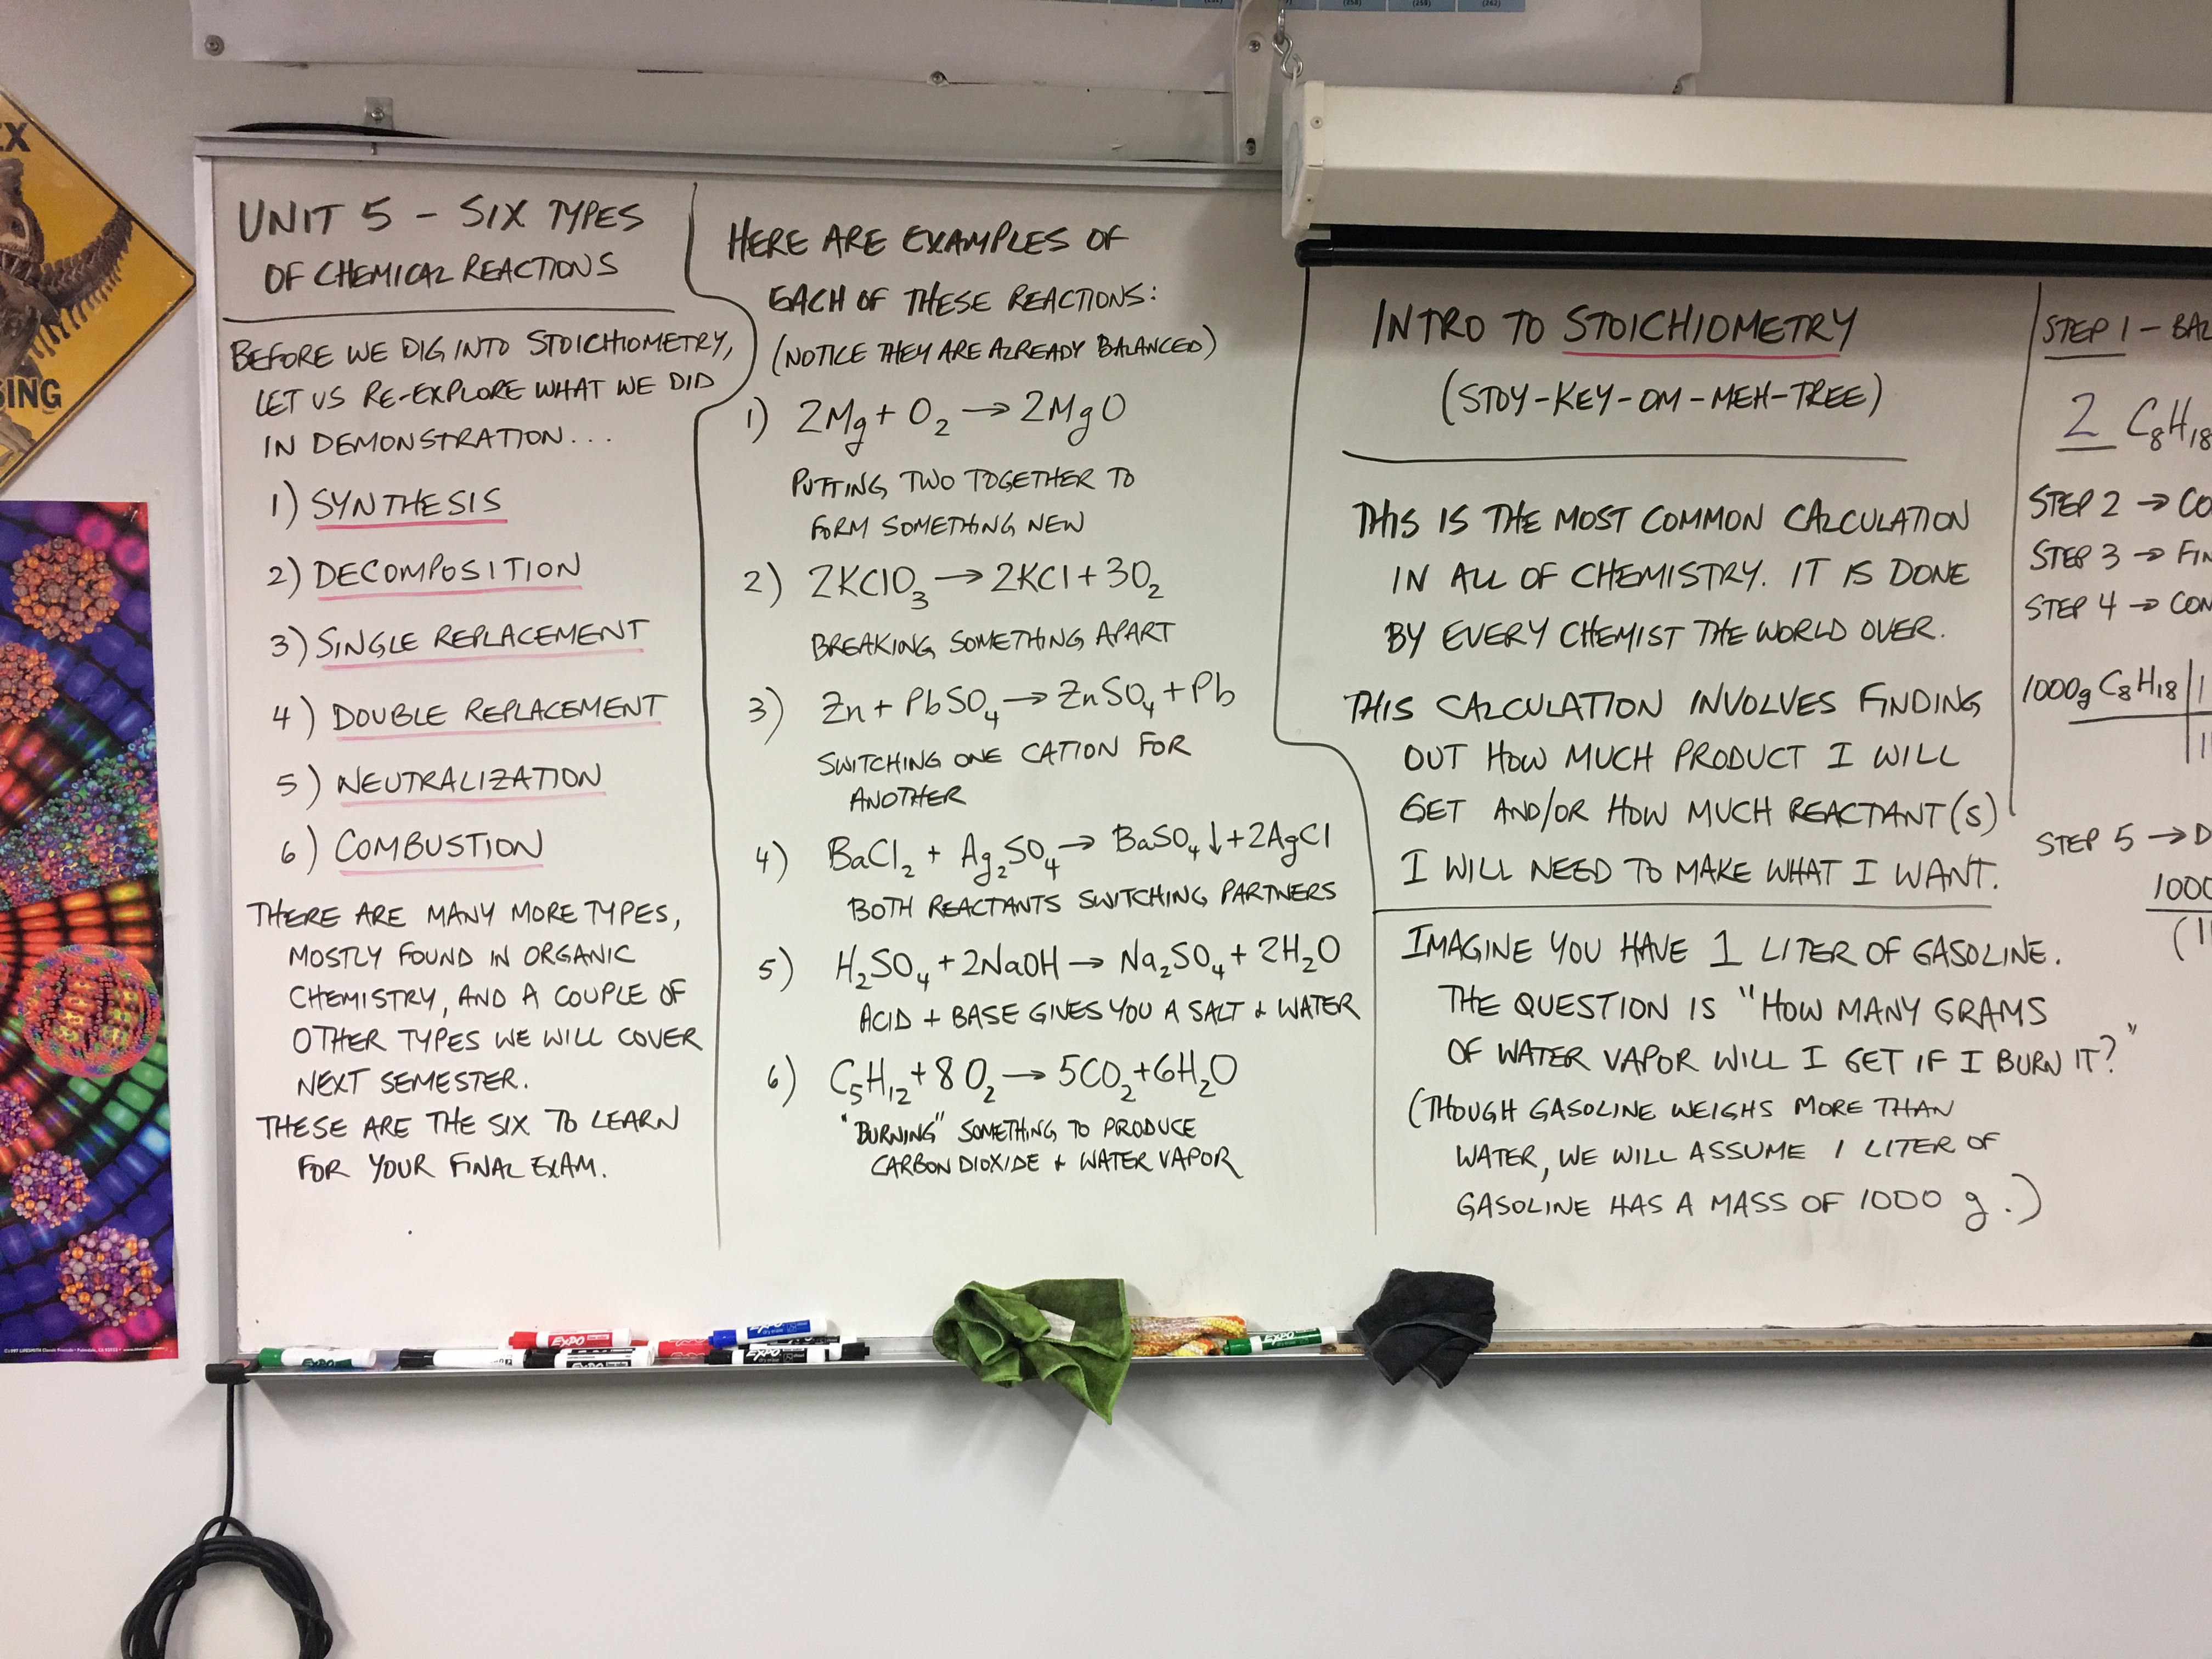 UNIT 5 - SIX TYPES
OF CHEMICAL REACTIONS
BEFORE WE DIG INTO STOICHIOMETRY,
LET US RE-EXPLORE WHAT WE DID
IN DEMONSTRATION...
1) SYNTHESIS
2) DECOMPOSITION
3) SINGLE REPLACEMENT
4) DOUBLE REPLACEMENT
5) NEUTRALIZATION
6) COMBUSTION
THERE ARE MANY MORE TYPES,
MOSTLY FOUND IN ORGANIC
CHEMISTRY, AND A COUPLE OF
OTHER TYPES WE WILL COVER
NEXT SEMESTER.
THESE ARE THE SIX TO LEARN
FOR YOUR FINAL EXAM.
HERE ARE EXAMPLES OF
EACH OF THESE REACTIONS:
(NOTICE THEY ARE ALREADY BALANCED)
1) 2Mg + O₂ → 2MgO
PUTTING TWO TOGETHER TO
FORM SOMETHING NEW
2) 2KClO₃ → 2KCl + 3O₂
BREAKING SOMETHING APART
3) Zn + PbSO₄ → ZnSO₄ + Pb
SWITCHING ONE CATION FOR
ANOTHER
4) BaCl₂ + Ag₂SO₄ → BaSO₄↓ + 2AgCl
BOTH REACTANTS SWITCHING PARTNERS
5) H₂SO₄ + 2NaOH → Na₂SO₄ + 2H₂O
ACID + BASE GIVES YOU A SALT & WATER
6) C₅H₁₂ + 8O₂ → 5CO₂ + 6H₂O
"BURNING" SOMETHING TO PRODUCE
CARBON DIOXIDE & WATER VAPOR
INTRO TO STOICHIOMETRY
(STOY-KEY-OM-MEH-TREE)
THIS IS THE MOST COMMON CALCULATION
IN ALL OF CHEMISTRY. IT IS DONE
BY EVERY CHEMIST THE WORLD OVER.
THIS CALCULATION INVOLVES FINDING
OUT HOW MUCH PRODUCT I WILL
GET AND/OR HOW MUCH REACTANT(S)
I WILL NEED TO MAKE WHAT I WANT.
IMAGINE YOU HAVE 1 LITER OF GASOLINE.
THE QUESTION IS "HOW MANY GRAMS
OF WATER VAPOR WILL I GET IF I BURN IT?"
(THOUGH GASOLINE WEIGHS MORE THAN
WATER, WE WILL ASSUME 1 LITER OF
GASOLINE HAS A MASS OF 1000 g.)
STEP 1 - BAL
2 C₈H₁₈
STEP 2 → CO
STEP 3 → FIN
STEP 4 → CON
1000g C₈H₁₈ | 1
STEP 5 → D
1000
EXPO
EXPO
EXPO
EXPO
EXPO